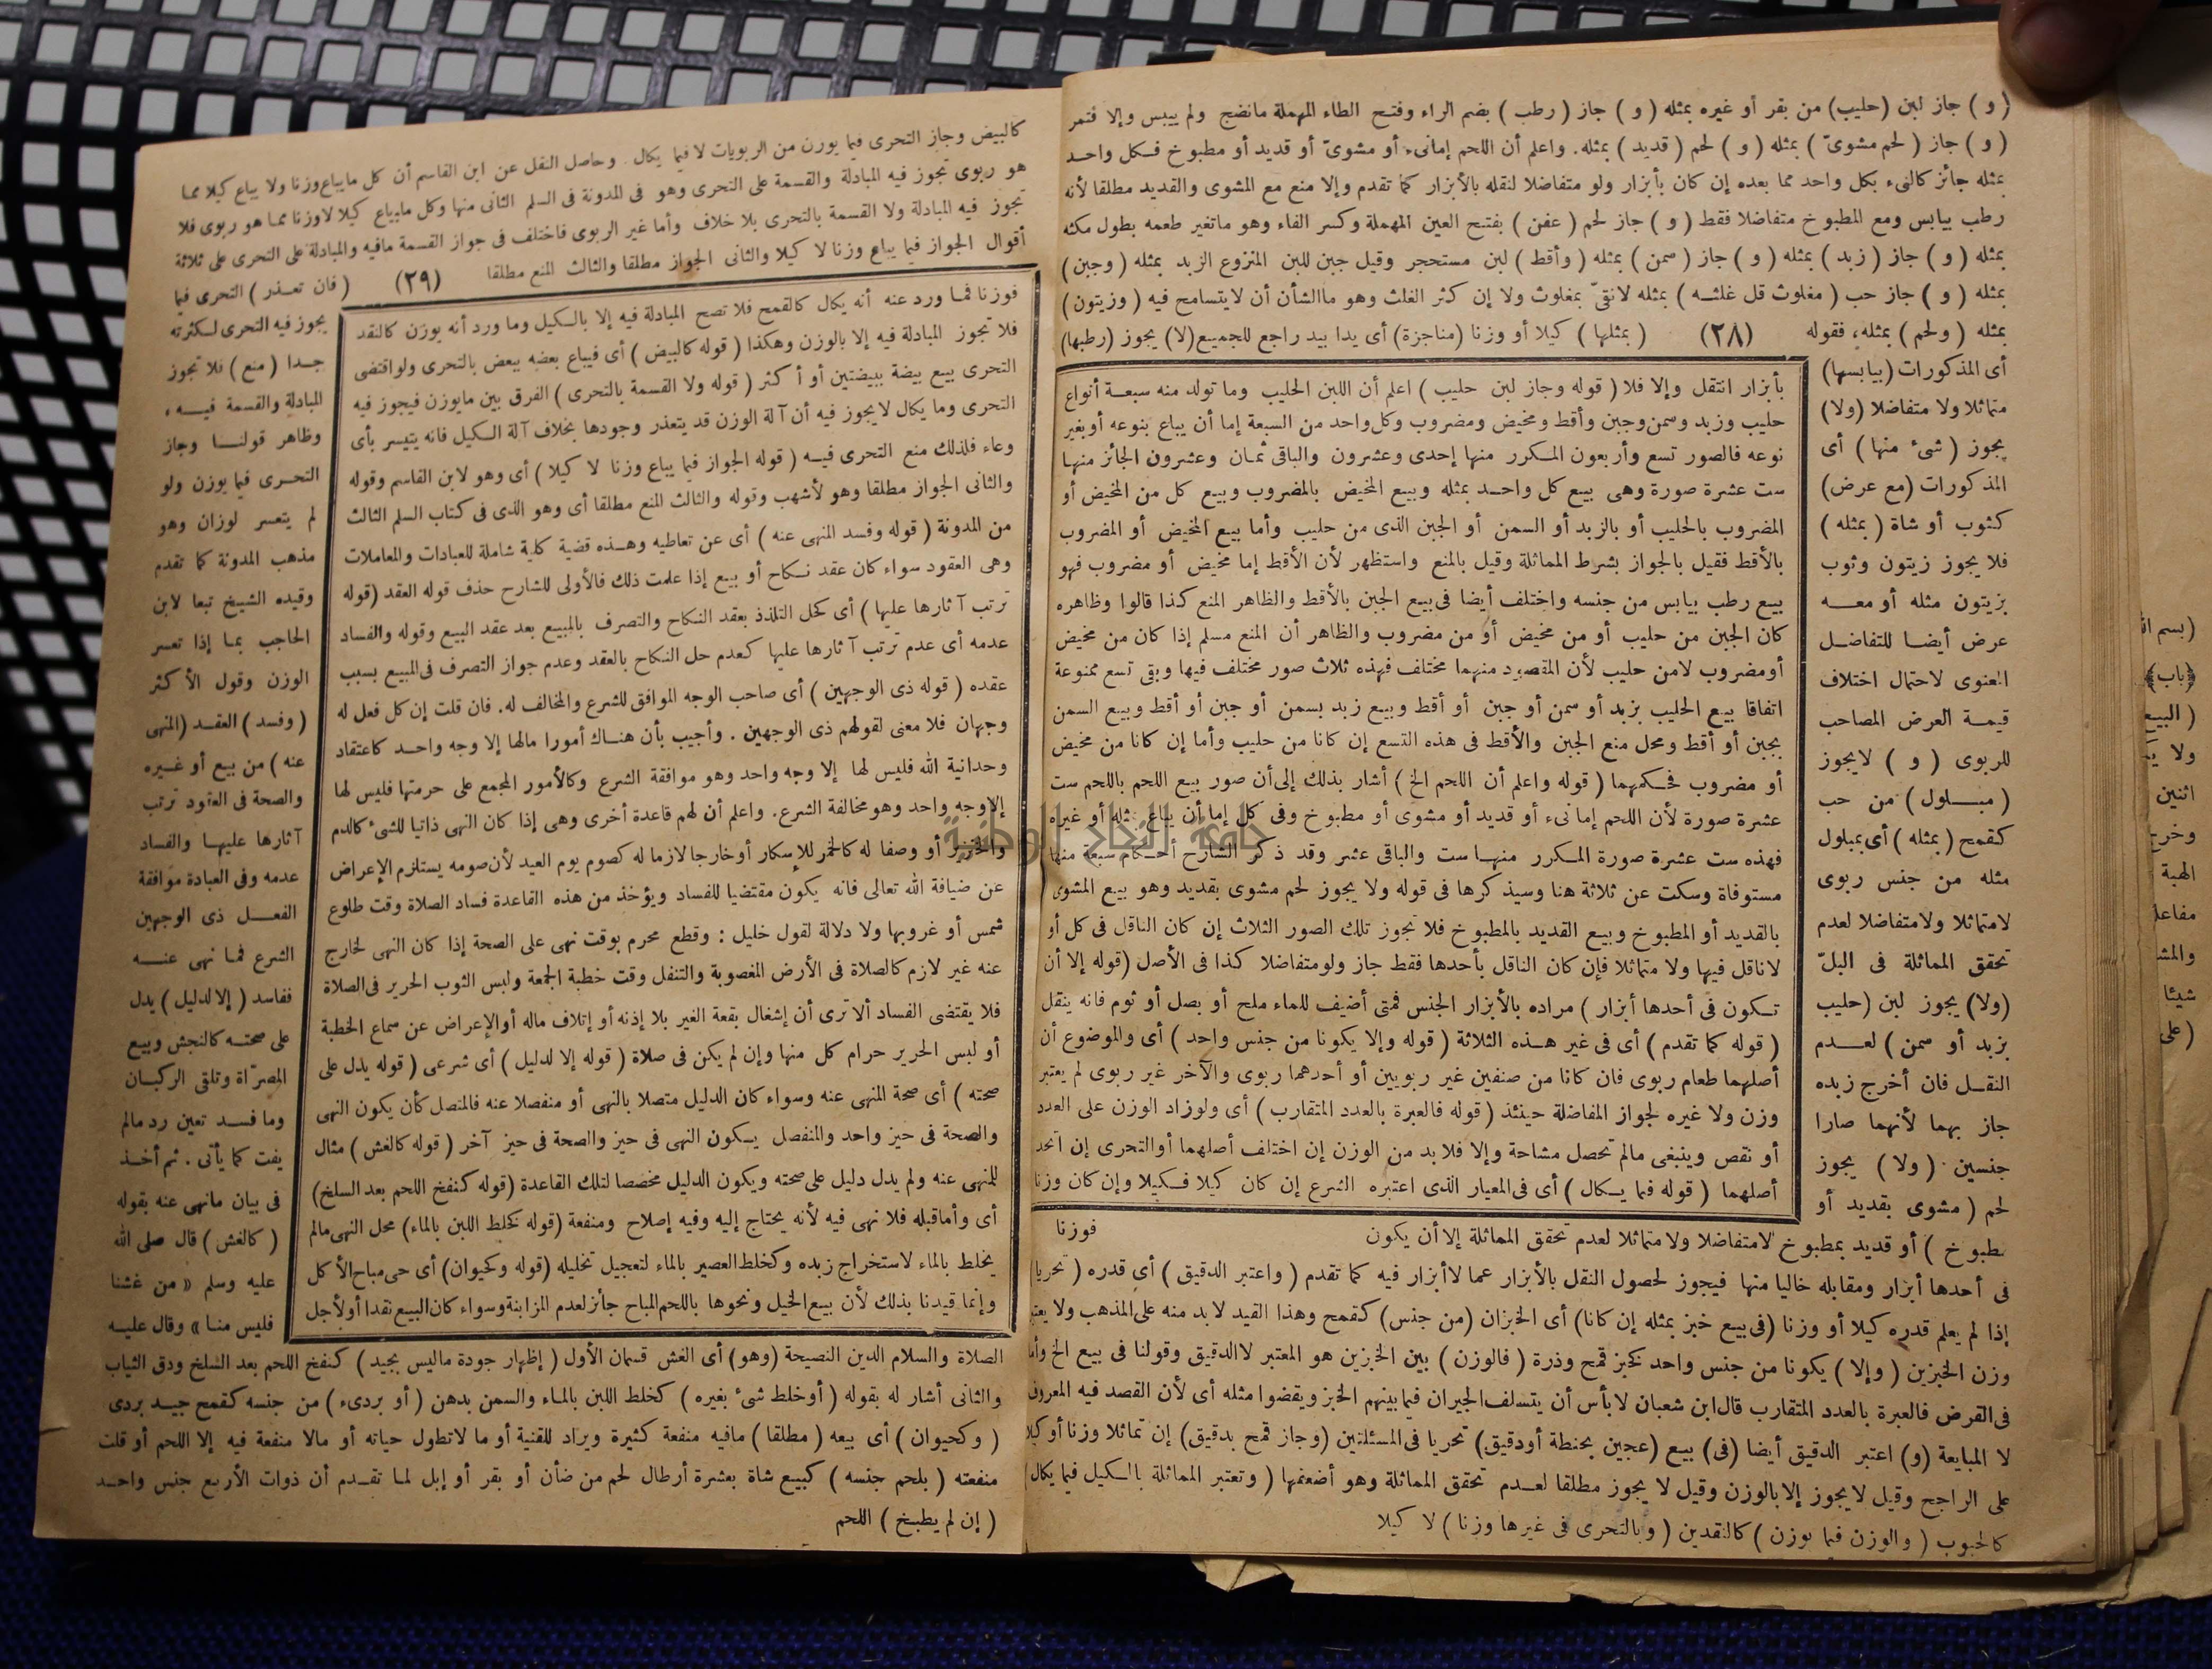 ( و ) جاز لبن (حليب) من بقر أو غيره بمثله ( و ) جاز ( رطب ) بضم الراء وفتح الطاء المهملة مانضج ولم ييبس وإلا فتمر
( و ) جاز ( لحم مشوىّ ) بمثله ( و ) لحم ( قديد ) بمثله. واعلم أن اللحم إمانىء أو مشوىّ أو قديد أو مطبوخ فكل واحد
بمثله جائز كالنىء بكل واحد مما بعده إن كان بأبزار ولو متفاضلا لنقله بالأبزار كما تقدم وإلا منع مع المشوى والقديد مطلقا لأنه
رطب بيابس ومع المطبوخ متفاضلا فقط ( و ) جاز لحم ( عفن ) بفتح العين المهملة وكسر الفاء وهو ماتغير طعمه بطول مكثه
بمثله ( و ) جاز ( زبد ) بمثله ( و ) جاز ( سمن ) بمثله ( وأقط ) لبن مستحجر وقيل جبن للبن المنزوع الزبد بمثله ( وجبن )
بمثله ( و ) جاز حب ( مغلوث قل غلثه ) بمثله لانقىّ بمغلوث ولا إن كثر الغلث وهو ماالشأن أن لايتسامح فيه ( وزيتون )
بمثله ( ولحم ) بمثله، فقوله (٢٨) ( بمثلها ) كيلا أو وزنا (مناجزة) أى يدا بيد راجع للجميع (لا) يجوز (رطبها)
أى المذكورات (بيابسها)
متماثلا ولا متفاضلا (ولا)
يجوز ( شىء منها ) أى
المذكورات (مع عرض)
كثوب أو شاة ( بمثله )
فلا يجوز زيتون وثوب
بزيتون مثله أو معه
عرض أيضا للتفاضل
المعنوى لاحتمال اختلاف
قيمة العرض المصاحب
للربوى ( و ) لايجوز
( مبلول ) من حب
كقمح ( بمثله ) أى بمبلول
مثله من جنس ربوى
لامتماثلا ولامتفاضلا لعدم
تحقق المماثلة فى البلّ
(ولا) يجوز لبن (حليب
بزبد أو سمن ) لعدم
النقل فان أخرج زبده
جاز بهما لأنهما صارا
جنسين . ( ولا ) يجوز
لحم ( مشوى بقديد أو
بأبزار انتقل وإلا فلا ( قوله وجاز لبن حليب ) اعلم أن اللبن الحليب وما تولد منه سبعة أنواع
حليب وزبد وسمن وجبن وأقط ومخيض ومضروب وكل واحد من السبعة إما أن يباع بنوعه أوبغير
نوعه فالصور تسع وأربعون المكرر منها إحدى وعشرون والباقى ثمان وعشرون الجائز منها
ست عشرة صورة وهى بيع كل واحد بمثله وبيع المخيض بالمضروب وبيع كل من المخيض أو
المضروب بالحليب أو بالزبد أو السمن أو الجبن الذى من حليب وأما بيع المخيض أو المضروب
بالأقط فقيل بالجواز بشرط المماثلة وقيل بالمنع واستظهر لأن الأقط إما مخيض أو مضروب فهو
بيع رطب بيابس من جنسه واختلف أيضا فى بيع الجبن بالأقط والظاهر المنع كذا قالوا وظاهره
كان الجبن من حليب أو من مخيض أو من مضروب والظاهر أن المنع مسلم إذا كان من مخيض
أومضروب لامن حليب لأن المقصود منهما مختلف فهذه ثلاث صور مختلف فيها وبقى تسع ممنوعة
اتفاقا بيع الحليب بزبد أو سمن أو جبن أو أقط وبيع زبد بسمن أو جبن أو أقط وبيع السمن
بجبن أو أقط ومحل منع الجبن والأقط فى هذه التسع إن كانا من حليب وأما إن كانا من مخيض
أو مضروب فحكمهما ( قوله واعلم أن اللحم الخ ) أشار بذلك إلى أن صور بيع اللحم باللحم ست
عشرة صورة لأن اللحم إمانىء أو قديد أو مشوى أو مطبوخ وفى كل إما أن يباع بمثله أو غيره
فهذه ست عشرة صورة المكرر منها ست والباقى عشر وقد ذكر الشارح أحكام سبعة منها
مستوفاة وسكت عن ثلاثة هنا وسيذكرها فى قوله ولا يجوز لحم مشوى بقديد وهو بيع المشوى
بالقديد أو المطبوخ وبيع القديد بالمطبوخ فلا تجوز تلك الصور الثلاث إن كان الناقل فى كل أو
لاناقل فيها ولا متماثلا فإن كان الناقل بأحدها فقط جاز ولومتفاضلا كذا فى الأصل (قوله إلا أن
تكون فى أحدها أبزار ) مراده بالأبزار الجنس فمتى أضيف للماء ملح أو بصل أو ثوم فانه ينقل
( قوله كما تقدم ) أى فى غير هذه الثلاثة ( قوله وإلا يكونا من جنس واحد ) أى والموضوع أن
أصلهما طعام ربوى فان كانا من صنفين غير ربويين أو أحدهما ربوى والآخر غير ربوى لم يعتبر
وزن ولا غيره لجواز المفاضلة حينئذ ( قوله فالعبرة بالعدد المتقارب ) أى ولوزاد الوزن على العدد
أو نقص وينبغى مالم تحصل مشاحة وإلا فلا بد من الوزن إن اختلف أصلهما أوالتحرى إن اتحد
أصلهما ( قوله فيما يكال ) أى فى المعيار الذى اعتبره الشرع إن كان كيلا فكيلا وإن كان وزنا
فوزنا
بطبوخ ) أو قديد بمطبوخ لامتفاضلا ولا متماثلا لعدم تحقق المماثلة إلا أن يكون
فى أحدها أبزار ومقابله خاليا منها فيجوز لحصول النقل بالأبزار عما لاأبزار فيه كما تقدم ( واعتبر الدقيق ) أى قدره ( تحريا
إذا لم يعلم قدره كيلا أو وزنا (فى بيع خبز بمثله إن كانا) أى الخبزان (من جنس) كقمح وهذا القيد لا بد منه على المذهب ولا يعتبر
وزن الخبزين ( وإلا ) يكونا من جنس واحد كخبز قمح وذرة ( فالوزن ) بين الخبزين هو المعتبر لاالدقيق وقولنا فى بيع الخ وأما
فى القرض فالعبرة بالعدد المتقارب قال ابن شعبان لا بأس أن يتسلف الجيران فيما بينهم الخبز ويقضوا مثله أى لأن القصد فيه المعروف
لا المبايعة (و) اعتبر الدقيق أيضا (فى) بيع (عجين بحنطة أودقيق) تحريا فى المسئلتين (وجاز قمح بدقيق) إن تماثلا وزنا أو كيلا
على الراجح وقيل لايجوز إلا بالوزن وقيل لا يجوز مطلقا لعدم تحقق المماثلة وهو أضعفها ( وتعتبر المماثلة بالكيل فيما يكال)
كالحبوب ( والوزن فيما يوزن ) كالنقدين ( وبالتحرى فى غيرها وزنا ) لا كيلا
كالبيض وجاز التحرى فيما يوزن من الربويات لا فيما يكال. وحاصل النقل عن ابن القاسم أن كل مايباع وزنا ولا يباع كيلا مما
هو ربوى تجوز فيه المبادلة والقسمة على التحرى وهو فى المدونة فى السلم الثانى منها وكل مايباع كيلا لاوزنا مما هو ربوى فلا
تجوز فيه المبادلة ولا القسمة بالتحرى بلا خلاف وأما غير الربوى فاختلف فى جواز القسمة مافيه والمبادلة على التحرى على ثلاثة
أقوال الجواز فيما يباع وزنا لا كيلا والثانى الجواز مطلقا والثالث المنع مطلقا (٢٩) ( فان تعذر ) التحرى فيما
يجوز فيه التحرى لكثرته
جدا ( منع ) فلا تجوز
المبادلة والقسمة فيه ،
وظاهر قولنا وجاز
التحرى فيما يوزن ولو
لم يتعسر لوزان وهو
مذهب المدونة كما تقدم
وقيده الشيخ تبعا لابن
الحاجب بما إذا تعسر
الوزن وقول الأكثر
( وفسد ) العقد (المنهى
عنه ) من بيع أو غيره
والصحة فى العقود ترتب
آثارها عليها والفساد
عدمه وفى العبادة موافقة
الفعل ذى الوجهين
الشرع فما نهى عنه
ففاسد ( إلا لدليل ) يدل
على صحته كالنجش وبيع
المصرّاة وتلقى الركبان
وما فسد تعين رد مالم
يفت كما يأتى . ثم أخذ
فى بيان مانهى عنه بقوله
( كالغش ) قال صلى الله
عليه وسلم « من غشنا
فليس منا » وقال عليه
فوزنا فما ورد عنه أنه يكال كالقمح فلا تصح المبادلة فيه إلا بالكيل وما ورد أنه يوزن كالنقد
فلا تجوز المبادلة فيه إلا بالوزن وهكذا ( قوله كالبيض ) أى فيباع بعضه ببعض بالتحرى ولو اقتضى
التحرى بيع بيضة ببيضتين أو أكثر ( قوله ولا القسمة بالتحرى ) الفرق بين مايوزن فيجوز فيه
التحرى وما يكال لايجوز فيه أن آلة الوزن قد يتعذر وجودها بخلاف آلة الكيل فانه يتيسر بأى
وعاء فلذلك منع التحرى فيه ( قوله الجواز فيما يباع وزنا لا كيلا ) أى وهو لابن القاسم وقوله
والثانى الجواز مطلقا وهو لأشهب وقوله والثالث المنع مطلقا أى وهو الذى فى كتاب السلم الثالث
من المدونة ( قوله وفسد المنهى عنه ) أى عن تعاطيه وهذه قضية كلية شاملة للعبادات والمعاملات
وهى العقود سواء كان عقد نكاح أو بيع إذا علمت ذلك فالأولى للشارح حذف قوله العقد (قوله
ترتب آثارها عليها ) أى كحل التلذذ بعقد النكاح والتصرف بالمبيع بعد عقد البيع وقوله والفساد
عدمه أى عدم ترتب آثارها عليها كعدم حل النكاح بالعقد وعدم جواز التصرف فى المبيع بسبب
عقده ( قوله ذى الوجهين ) أى صاحب الوجه الموافق للشرع والمخالف له. فان قلت إن كل فعل له
وجهان فلا معنى لقولهم ذى الوجهين . وأجيب بأن هناك أمورا مالها إلا وجه واحد كاعتقاد
وحدانية الله فليس لها إلا وجه واحد وهو موافقة الشرع وكالأمور المجمع على حرمتها فليس لها
إلا وجه واحد وهو مخالفة الشرع. واعلم أن لهم قاعدة أخرى وهى إذا كان النهى ذاتيا للشىء كالدم
والخنزير أو وصفا له كالخمر للإسكار أو خارجا لازما له كصوم يوم العيد لأن صومه يستلزم الإعراض
عن ضيافة الله تعالى فانه يكون مقتضيا للفساد ويؤخذ من هذه القاعدة فساد الصلاة وقت طلوع
شمس أو غروبها ولا دلالة لقول خليل : وقطع محرم بوقت نهى على الصحة إذا كان النهى لخارج
عنه غير لازم كالصلاة فى الأرض المغصوبة والتنفل وقت خطبة الجمعة ولبس الثوب الحرير فى الصلاة
فلا يقتضى الفساد ألا ترى أن إشغال بقعة الغير بلا إذنه أو إتلاف ماله أو الإعراض عن سماع الخطبة
أو لبس الحرير حرام كل منها وإن لم يكن فى صلاة ( قوله إلا لدليل ) أى شرعى ( قوله يدل على
صحته ) أى صحة المنهى عنه وسواء كان الدليل متصلا بالنهى أو منفصلا عنه فالمتصل كأن يكون النهى
والصحة فى حيز واحد والمنفصل يكون النهى فى حيز والصحة فى حيز آخر ( قوله كالغش ) مثال
للمنهى عنه ولم يدل دليل على صحته ويكون الدليل مخصصا لتلك القاعدة (قوله كنفخ اللحم بعد السلخ)
أى وأما قبله فلا نهى فيه لأنه يحتاج إليه وفيه إصلاح ومنفعة (قوله كخلط اللبن بالماء) محل النهى مالم
يخلط بالماء لاستخراج زبده وكخلط العصير بالماء لتعجيل تخليله (قوله وكحيوان) أى حى مباح الأكل
وإنما قيدنا بذلك لأن بيع الخيل ونحوها باللحم المباح جائز لعدم المزابنة وسواء كان البيع نقدا أو لأجل
الصلاة والسلام الدين النصيحة (وهو) أى الغش قسمان الأول ( إظهار جودة ماليس بجيد ) كنفخ اللحم بعد السلخ ودق الثياب
والثانى أشار له بقوله ( أو خلط شىء بغيره ) كخلط اللبن بالماء والسمن بدهن ( أو بردىء ) من جنسه كقمح جيد بردى
( وكحيوان ) أى بيعه ( مطلقا ) مافيه منفعة كثيرة ويراد للقنية أو ما لاتطول حياته أو مالا منفعة فيه إلا اللحم أو قلت
منفعته ( بلحم جنسه ) كبيع شاة بعشرة أرطال لحم من ضأن أو بقر أو إبل لما تقدم أن ذوات الأربع جنس واحد
( إن لم يطبخ ) اللحم
جامعة النجاح الوطنية
(بسم ا
﴿باب﴾
( البيع
اثنين
الهبة
شيئا
(على